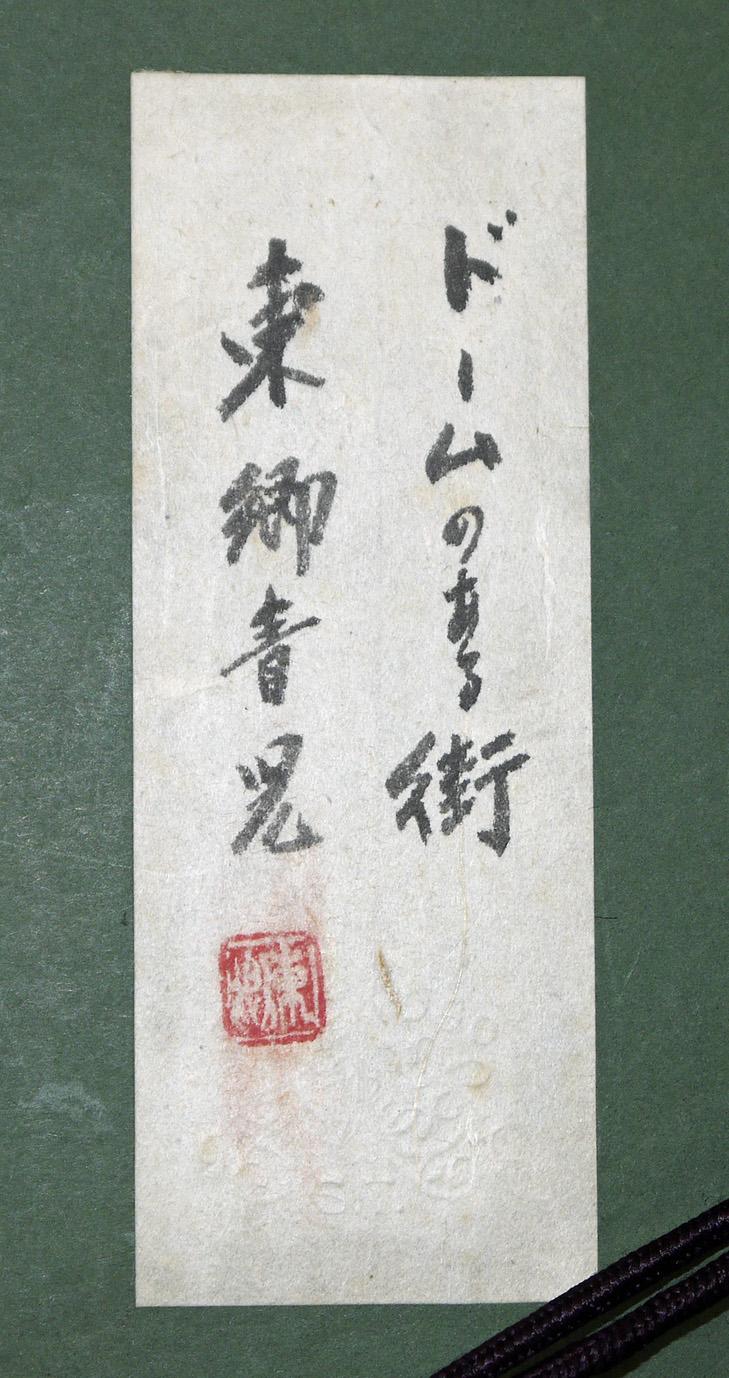 ドームのある街
東郷青児
東郷